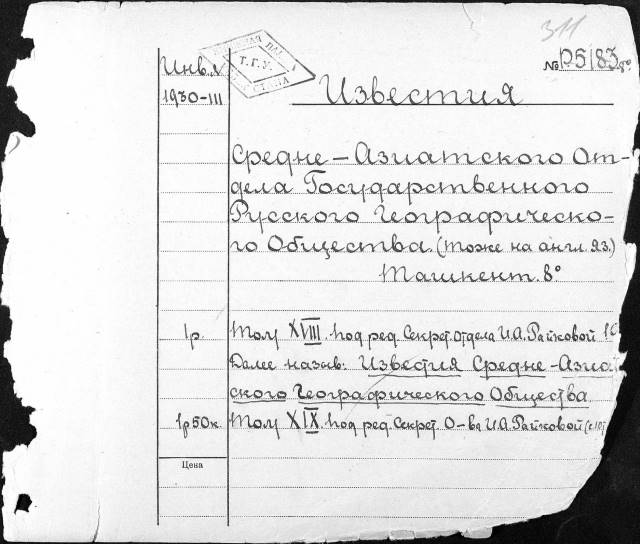 311
Инв. №
№ Р5183 8°
Т.Г.У.
1930-III
Известия
Средне-Азиатского От-
дела Государственного
Русского Географическо-
го Общества. (Тоже на англ. яз.)
Ташкент. 8°
1р. Том XVIII. Под ред. Секрет. Отдела И.А. Райковой
Далее назыв: Известия Средне-Азиат
ского Географического Общества.
1р50к. Том XIX. Под ред. Секрет. О-ва И.А. Райковой
Цена